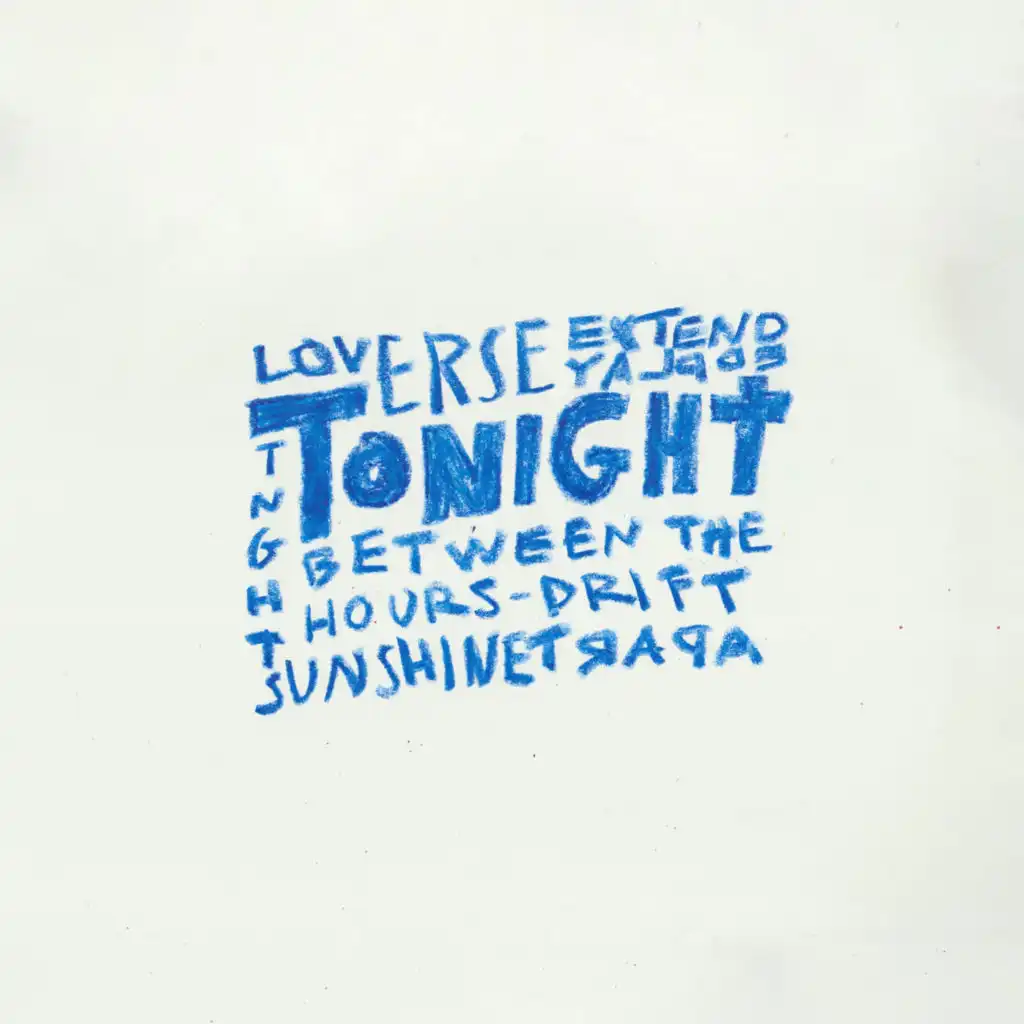 LOVERSE EXTEND
YALPSB
TONIGHT
TNGHT
BETWEEN THE
HOURS-DRIFT
SUNSHINETRAPA